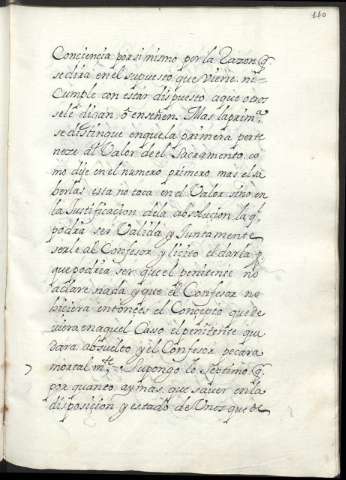 160
Conciencia por si mismo por la Razon q̃
se dira en el supuesto que viene no
Cumple con estar dispuesto a que otros
sele digan ò enseñen. Mas la prim.ª
se distingue en que la primera perte
neze al Valor de el Sacramento, co
mo dije en el numero primero, mas el sa
berlas esta no toca en el Valor sino en
la Justificacion de la absolucion la q̃
podra ser Valida y Juntamente
serle al Confesor y licito el darla q̃
que podria ser que el penitente no
aclare nada y que el Confesor no
hiciera entonces el Concepto que de
viera en aquel Caso el penitente que
dara absuelto y el Confesor pecara
mortal m.te Supongo lo Septimo q̃
por quanto ay mas que saver en la
disposicion y estado de Unos que de